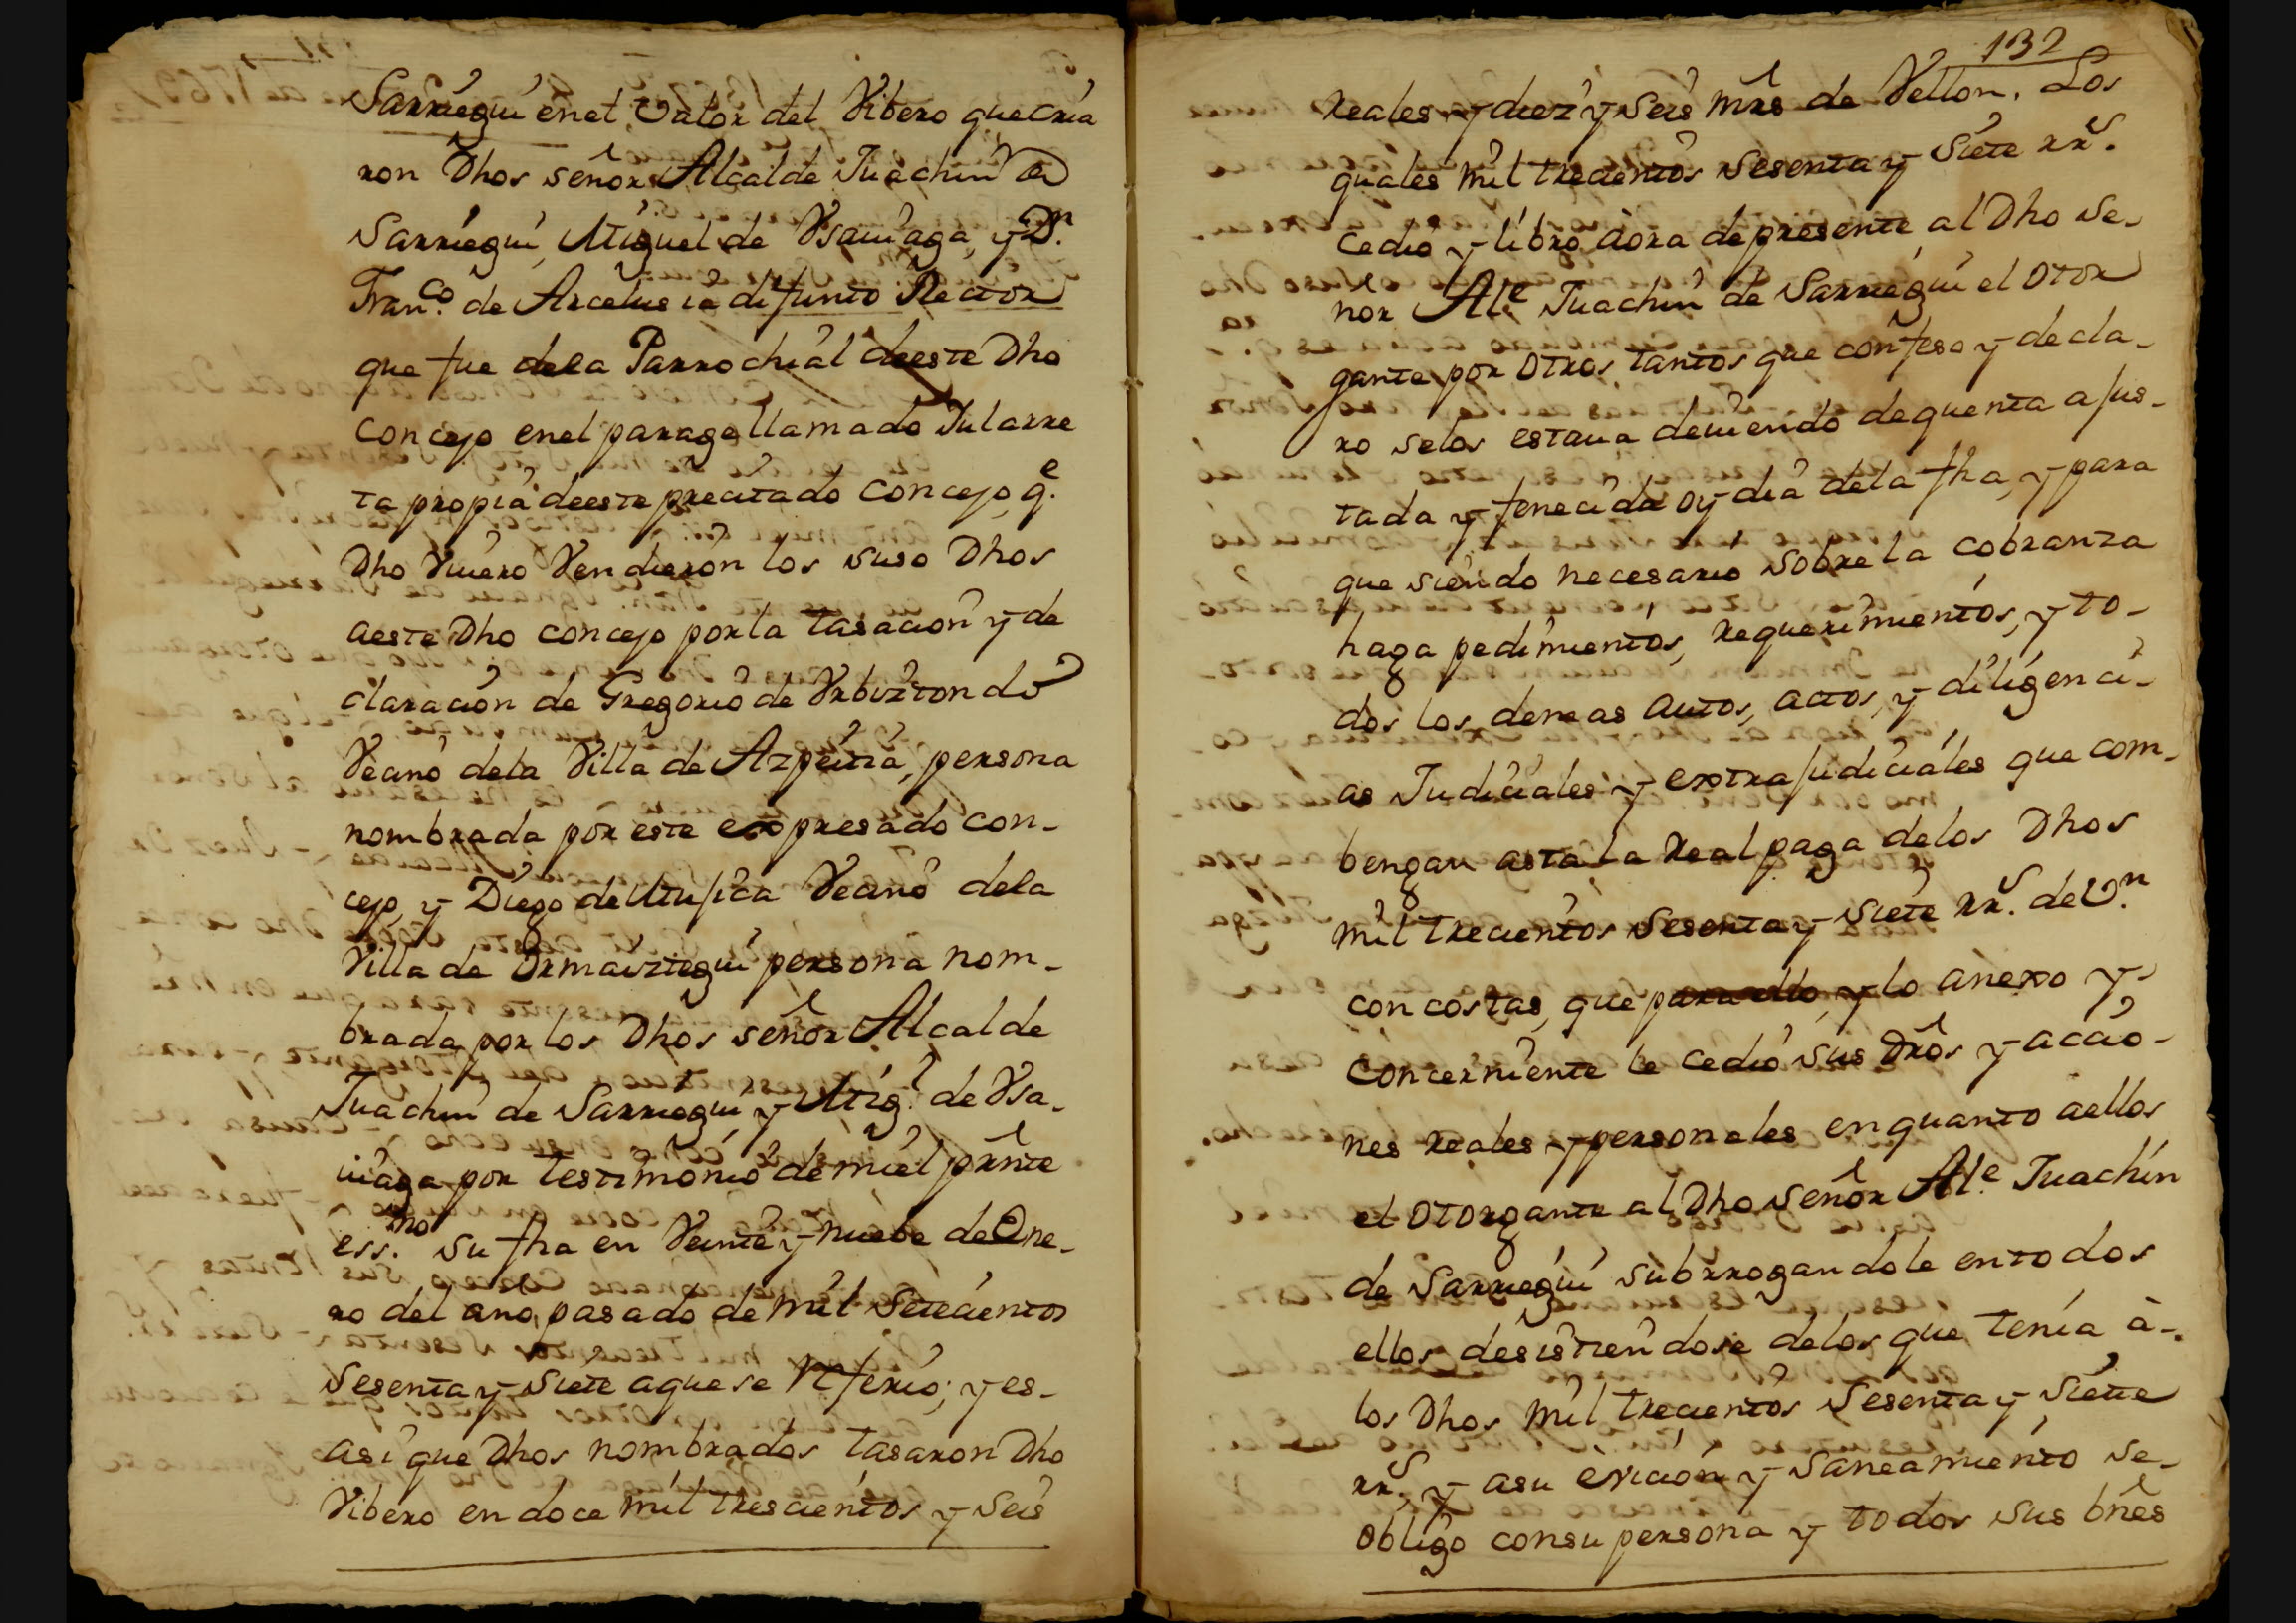 Sarriegui en el Valor del Vibero que cria
ron Dhos señor Alcalde Juachin de
Sarriegui, Miguel de Ysauiaga, y Dn.
Franco. de Arcelus ia difunto Rector
que fue dela Parrochial deeste Dho
Concejo enel parage llamado Jularre
ta propia deeste precitado concejo, qe.
Dho Viuero Vendieron los suso Dhos
aeste Dho concejo por la tasacion y de
claracion de Gregorio de Vrbiztondo
Vecino dela Villa de Azpeitia, persona
nombrada por este expresado con-
cejo, y Diego de Mujica Vecino dela
Villa de Ormaiztegui persona nom-
brada por los Dhos señor Alcalde
Juachin de Sarriegui, y Migl. de Ysa-
uiaga por testimonio de mi el prnte
essno. su fha en Veinte y nuebe de Ene-
ro del año pasado de mil Setecientos
Sesenta y Siete aque se refirio; y es-
asi que Dhos nombrados tasaron Dho
Vibero en doce mil trescientos y Seis
132
Reales y diez y Seis mrs de Vellon. Los
quales mil trecientos Sesenta y Siete rrs.
Cedio y libro aora depresente al Dho Se-
ñor Ale Juachin de Sarriegui el otor
gante por otros tantos que confeso y decla-
ro selos estaua deuiendo dequenta ajus-
tada y fenecida oy dia dela fha, y para
que siendo necesario sobre la cobranza
haga pedimientos, requerimientos, y to-
dos los demas autos, actos, y diligenci-
as Judiciales y extrajudiciales que com-
bengan asta la Real paga delos Dhos
mil trecientos Sesenta y Siete rrs. de Vn.
con costas, que para ello, y lo anexo y-
concerniente le cedio sus dros y accio-
nes reales y personales enquanto aellos
el otorgante al Dho Señor Ale. Juachin
de Sarriegui subrrogandole entodos
ellos desistiendose delos que tenia à-
los Dhos mil trecientos Sesenta y Siete
rrs., y asu evicion y Saneamiento se-
obligo consu persona y todos sus bnes